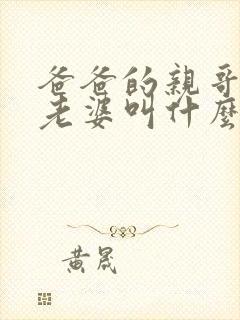 爸爸的親哥
老婆叫什麼
黃晟